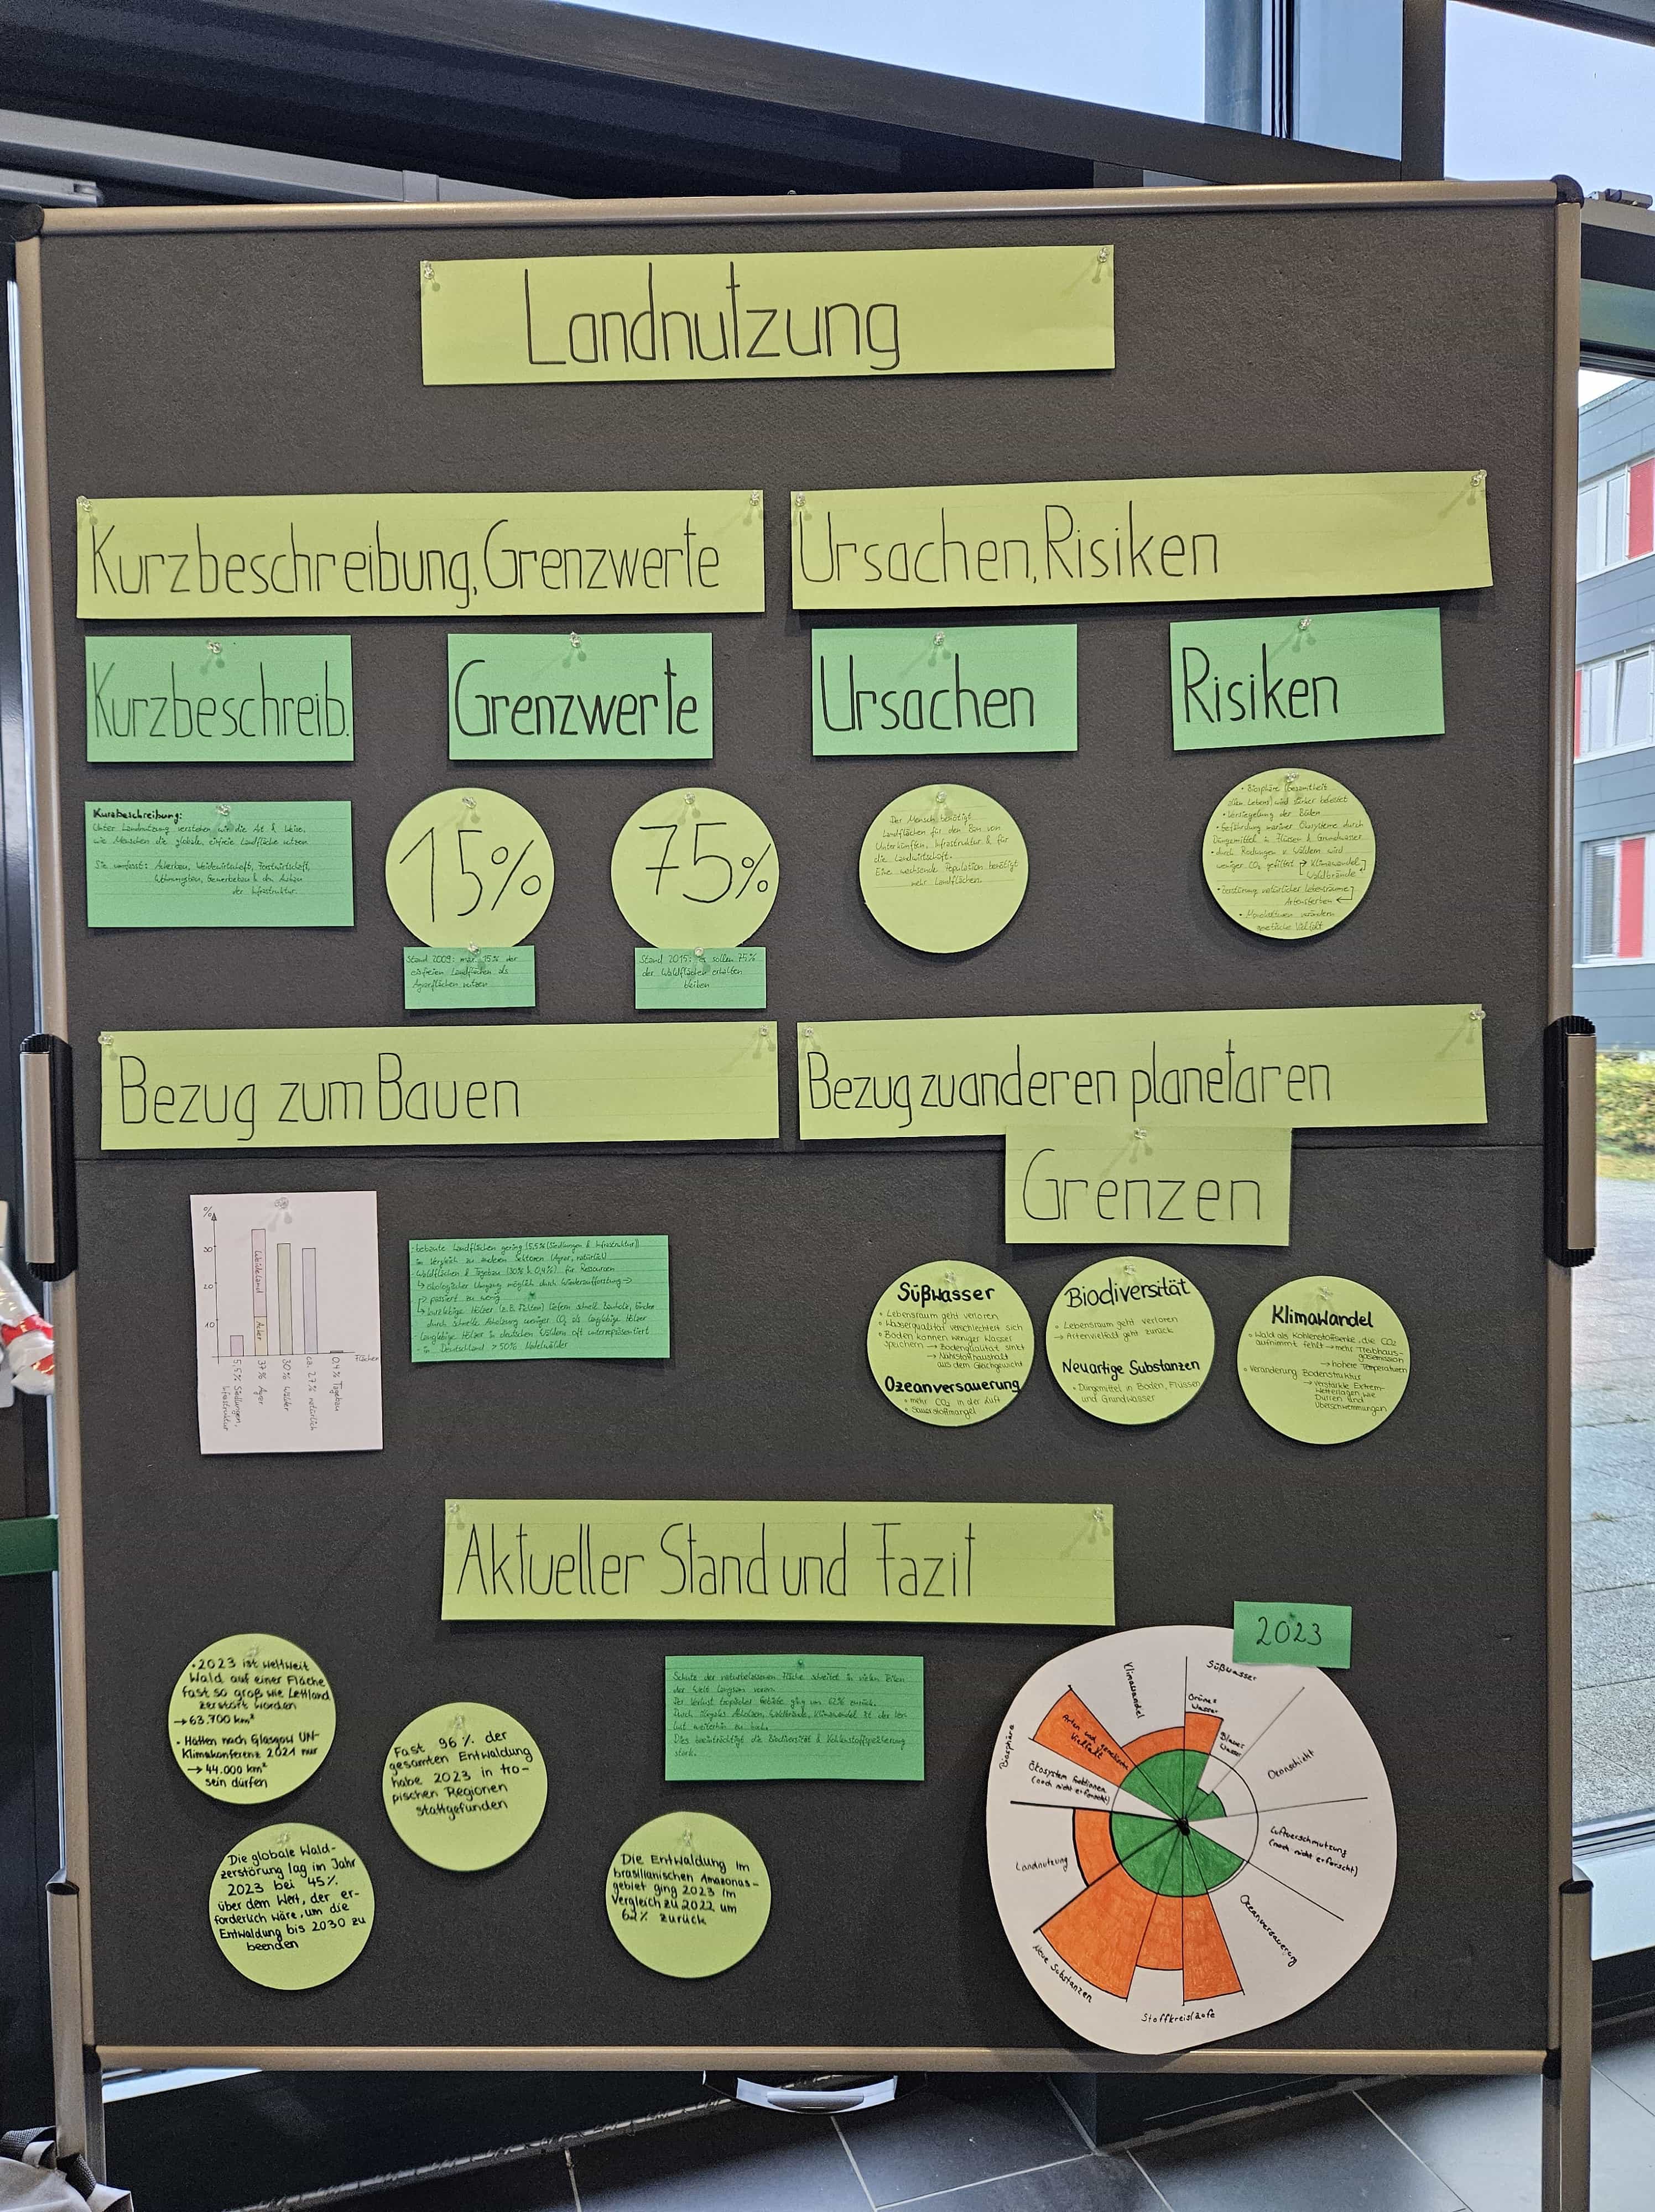 Landnutzung
Kurzbeschreibung, Grenzwerte
Kurzbeschreib.
Grenzwerte
Kurzbeschreibung:
Unter Landnutzung verstehen wir die Art & Weise,
wie Menschen die globale, eisfreie Landfläche nutzen
Sie umfasst: Ackerbau, Weidewirtschaft, Forstwirtschaft,
Wohnungsbau, Gewerbebau & den Ausbau
der Infrastruktur.
15%
Stand 2009: max. 15% der
eisfreien Landflächen als
Agrarflächen nutzen
75%
Stand 2015: es sollen 75%
der Waldflächen erhalten
bleiben
Ursachen, Risiken
Ursachen
Risiken
Der Mensch benötigt
Landflächen für den Bau von
Unterkünften, Infrastruktur & für
die Landwirtschaft.
Eine wachsende Population benötigt
mehr Landflächen.
• Biosphäre (Gesamtheit
allen Lebens) wird stärker belastet
• Versiegelung der Böden
• Gefährdung mariner Ökosysteme durch
Düngemittel in Flüssen & Grundwasser
• durch Rodungen v. Wäldern wird
weniger CO₂ gefiltert → Klimawandel
Waldbrände
• Zerstörung natürlicher Lebensräume
Artensterben
• Monokulturen
genetische Vielfalt
Bezug zum Bauen
%
30
20
10
Weideland
Acker
Flächen
5,5% Siedlungen,
Infrastruktur
37% Agrar
30% Wälder
ca. 27% natürlich
0,4% Tagebau
- bebaute Landflächen gering (5,5% (Siedlungen & Infrastruktur))
im Vergleich zu anderen Sektoren (Agrar, natürl.)
- Waldflächen & Tagebau (30% & 0,4%) für Ressourcen
↳ ökologischer Umgang möglich durch Wiederaufforstung →
passiert zu wenig
↳ kurzlebige Hölzer (z.B. Fichten) liefern schnell Bauholz, binden
durch schnelle Abholzung weniger CO₂ als langlebige Hölzer
- langlebige Hölzer in deutschen Wäldern oft unterrepräsentiert
- in Deutschland > 50% Nadelwälder
Bezug zu anderen planetaren
Grenzen
Süßwasser
• Lebensraum geht verloren
• Wasserqualität verschlechtert sich
• Böden können weniger Wasser
speichern → Bodenqualität sinkt
→ Nährstoffhaushalt
aus dem Gleichgewicht
Ozeanversauerung
• mehr CO₂ in der Luft
• Sauerstoffmangel
Biodiversität
• Lebensraum geht verloren
→ Artenvielfalt geht zurück
Neuartige Substanzen
• Düngemittel in Böden, Flüssen
und Grundwasser
Klimawandel
• Wald als Kohlenstoffsenke, die CO₂
aufnimmt fehlt → mehr Treibhaus-
gasemission
→ höhere Temperaturen
• Veränderung Bodenstruktur
→ verstärkte Extrem-
Wetterlagen wie
Dürren und
Überschwemmungen
Aktueller Stand und Fazit
• 2023 ist weltweit
Wald auf einer Fläche
fast so groß wie Lettland
zerstört worden
→ 63.700 km²
• Hätten nach Glasgow UN-
Klimakonferenz 2021 nur
→ 44.000 km²
sein dürfen
Fast 96% der
gesamten Entwaldung
habe 2023 in tro-
pischen Regionen
stattgefunden
Die globale Wald-
zerstörung lag im Jahr
2023 bei 45%
über dem Wert, der er-
forderlich wäre, um die
Entwaldung bis 2030 zu
beenden
Die Entwaldung im
brasilianischen Amazonas-
gebiet ging 2023 im
Vergleich zu 2022 um
62% zurück
Schutz der naturbelassenen Fläche schreitet in vielen Teilen
der Welt langsam voran.
Der Verlust tropischer Gebiete ging um 62% zurück.
Durch illegales Abholzen, Waldbrände, Klimawandel ist der Ver-
lust weiterhin zu hoch.
Dies beeinträchtigt die Biodiversität & Kohlenstoffspeicherung
stark.
2023
Süßwasser
Grünes
Wasser
Blaues
Wasser
Klimawandel
Biosphäre
Arten und genetische
Vielfalt
Ökosystem funktionen
(noch nicht erforscht)
Ozonschicht
Luftverschmutzung
(noch nicht erforscht)
Landnutzung
Ozeanversauerung
Neue Substanzen
Stoffkreisläufe